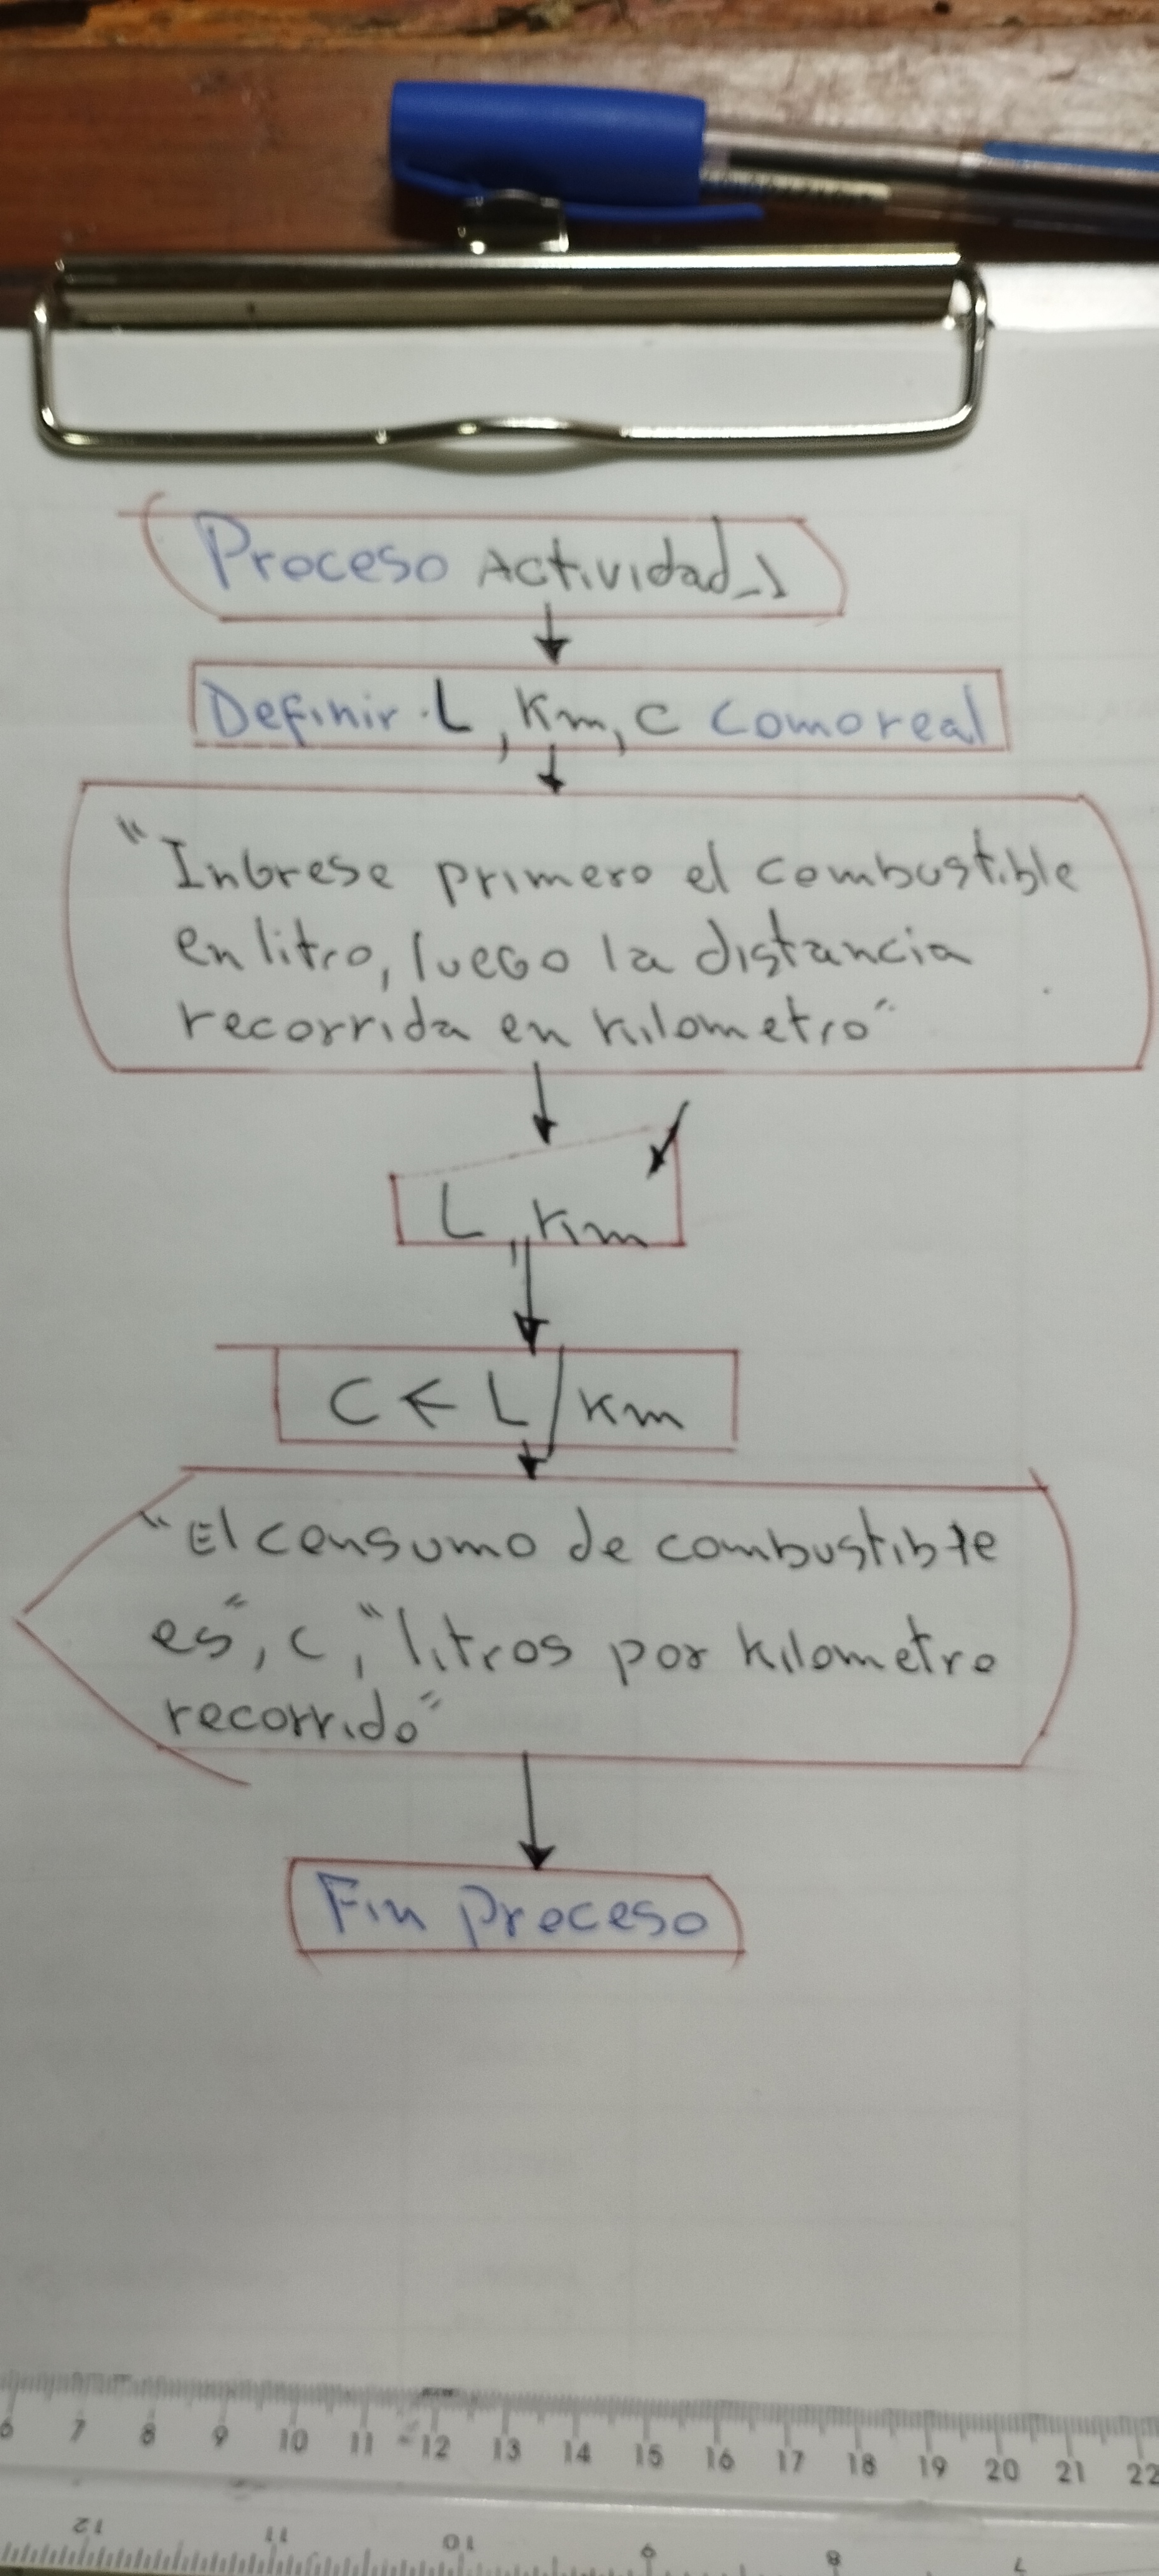 Proceso Actividad_1
Definir L, Km, C como real
"Ingrese primero el combustible
en litro, luego la distancia
recorrida en kilometro"
L, Km
C ← L/Km
"El consumo de combustible
es", c, "litros por kilometro
recorrido"
Fin Proceso
6 7 8 9 10 11 12 13 14 15 16 17 18 19 20 21 22
12 11 10 9 8 7